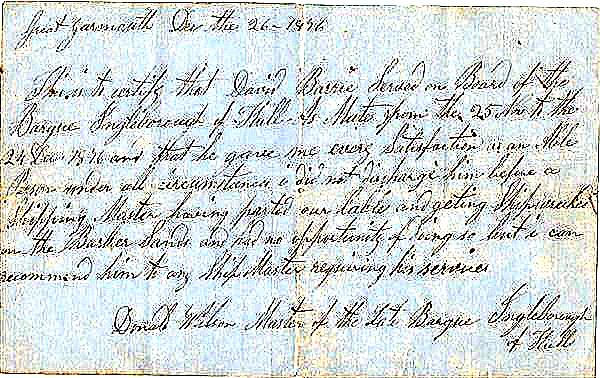 Great Yarmouth Dec the 26 - 1876
This is to certify that David Barrie Served on Board of the
Barque Ingleborough of Hull As Mate from the 25 Nov to the
24 Dec 1876 and that he gave me every Satisfaction as an Able
Person under all circumstances i did not discharge him before a
Shipping Master having parted our cables and geting Shipwrecked
on the Barber Sands and had no opportunity of doing so but i can
recommend him to any Ship Master requiring his services
Donald Wilson Master of the Late Barque Ingleborough
of Hull